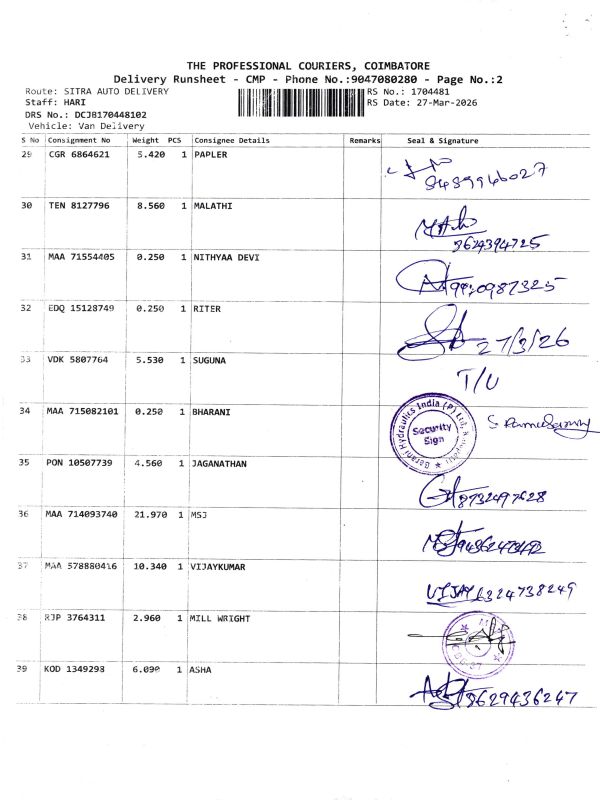 THE PROFESSIONAL COURIERS, COIMBATORE
Delivery Runsheet - CMP - Phone No.:9047080280 - Page No.:2
Route: SITRA AUTO DELIVERY
RS No.: 1704481
Staff: HARI
RS Date: 27-Mar-2026
DRS No.: DCJB170448102
Vehicle: Van Delivery
S No Consignment No Weight PCS Consignee Details Remarks Seal & Signature
29 CGR 6864621 5.420 1 PAPLER
8489946027
30 TEN 8127796 8.560 1 MALATHI
9624394725
31 MAA 71554405 0.250 1 NITHYAA DEVI
32 EDQ 15128749 0.250 1 RITER
27/3/26
33 VDK 5807764 5.530 1 SUGUNA
T/U
34 MAA 715082101 0.250 1 BHARANI
Hydraulics India (P) Ltd,
Security
Sign
35 PON 10507739 4.560 1 JAGANATHAN
8732497628
36 MAA 714093740 21.970 1 MSJ
37 MAA 578880416 10.340 1 VIJAYKUMAR
VIJAY 6324738249
38 RJP 3764311 2.960 1 MILL WRIGHT
39 KOD 1349298 6.090 1 ASHA
8629436247